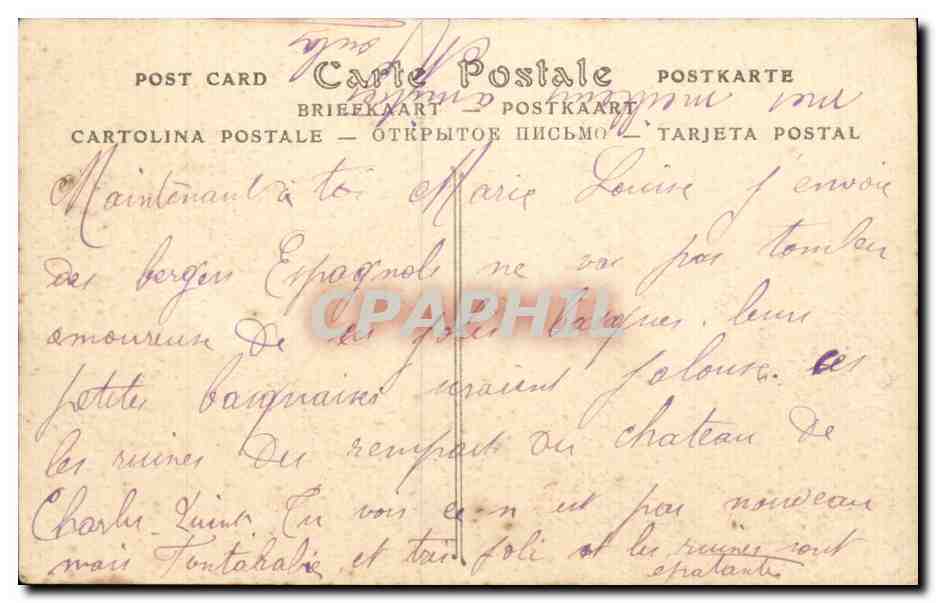 POST CARD Carte Postale POSTKARTE
BRIEFKAART — POSTKAART
CARTOLINA POSTALE — ОТКРЫТОЕ ПИСЬМО — TARJETA POSTAL
Maintenant à toi Marie Louise j'envoie
des bergers Espagnols ne vas pas tomber
amoureuse de ces jolis basques. leurs
petites basquaises seraient jalouses. ces
les ruines des remparts du chateau de
Charles Quint. Tu vois ce n est pas nouveau
mais Fontarabie et très joli et les ruines sont
epatantes
mes meilleurs amitiés
CPAPHIL